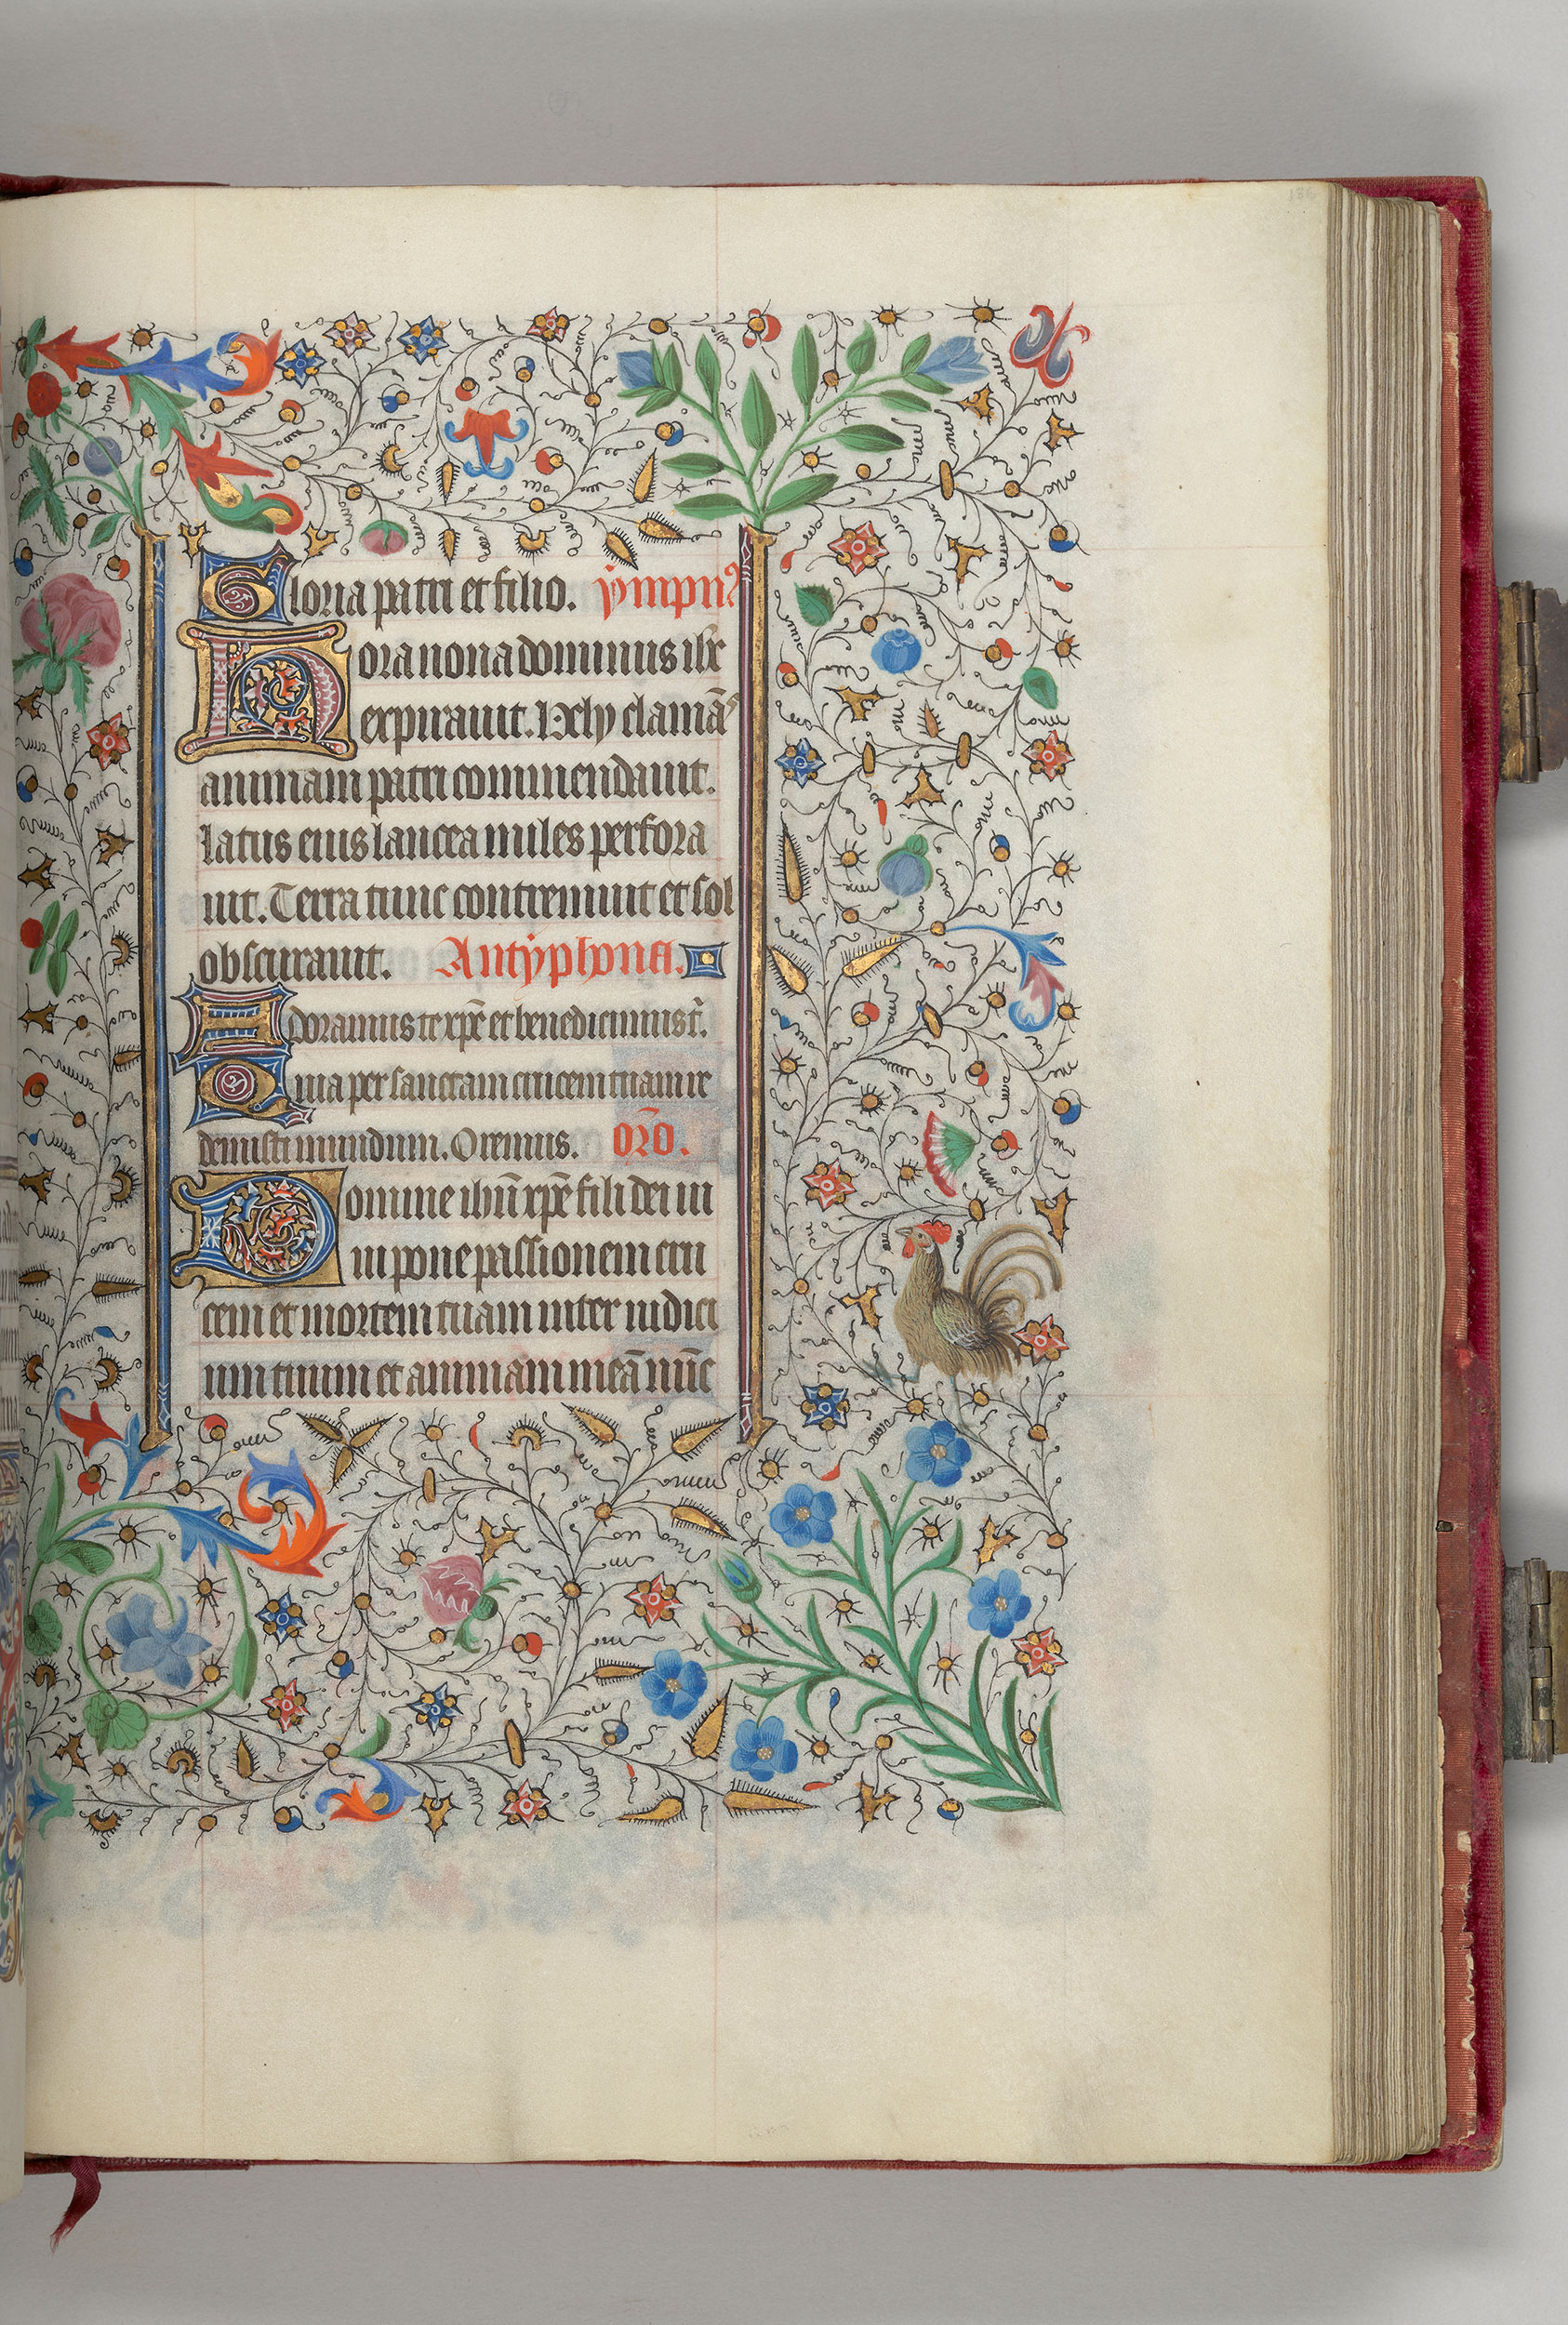 136
Gloria patri et filio. ympnꝰ
Hora nona dominus ihc
expirauit. Hely clamãs
animam patri commendauit.
latus eius lancea miles perfora
uit. Terra tunc contremuit et sol
obscurauit. Antyphona.
Adoramus te xp̃e et benedicimus t̃.
Quia per sanctam crucem tuam re
demisti mundum. Oremus. Orõ.
Domine ihũ xp̃e fili dei ui
ui pone passionem cru
cem et mortem tuam inter iudici
um tuum et animam meã nũc